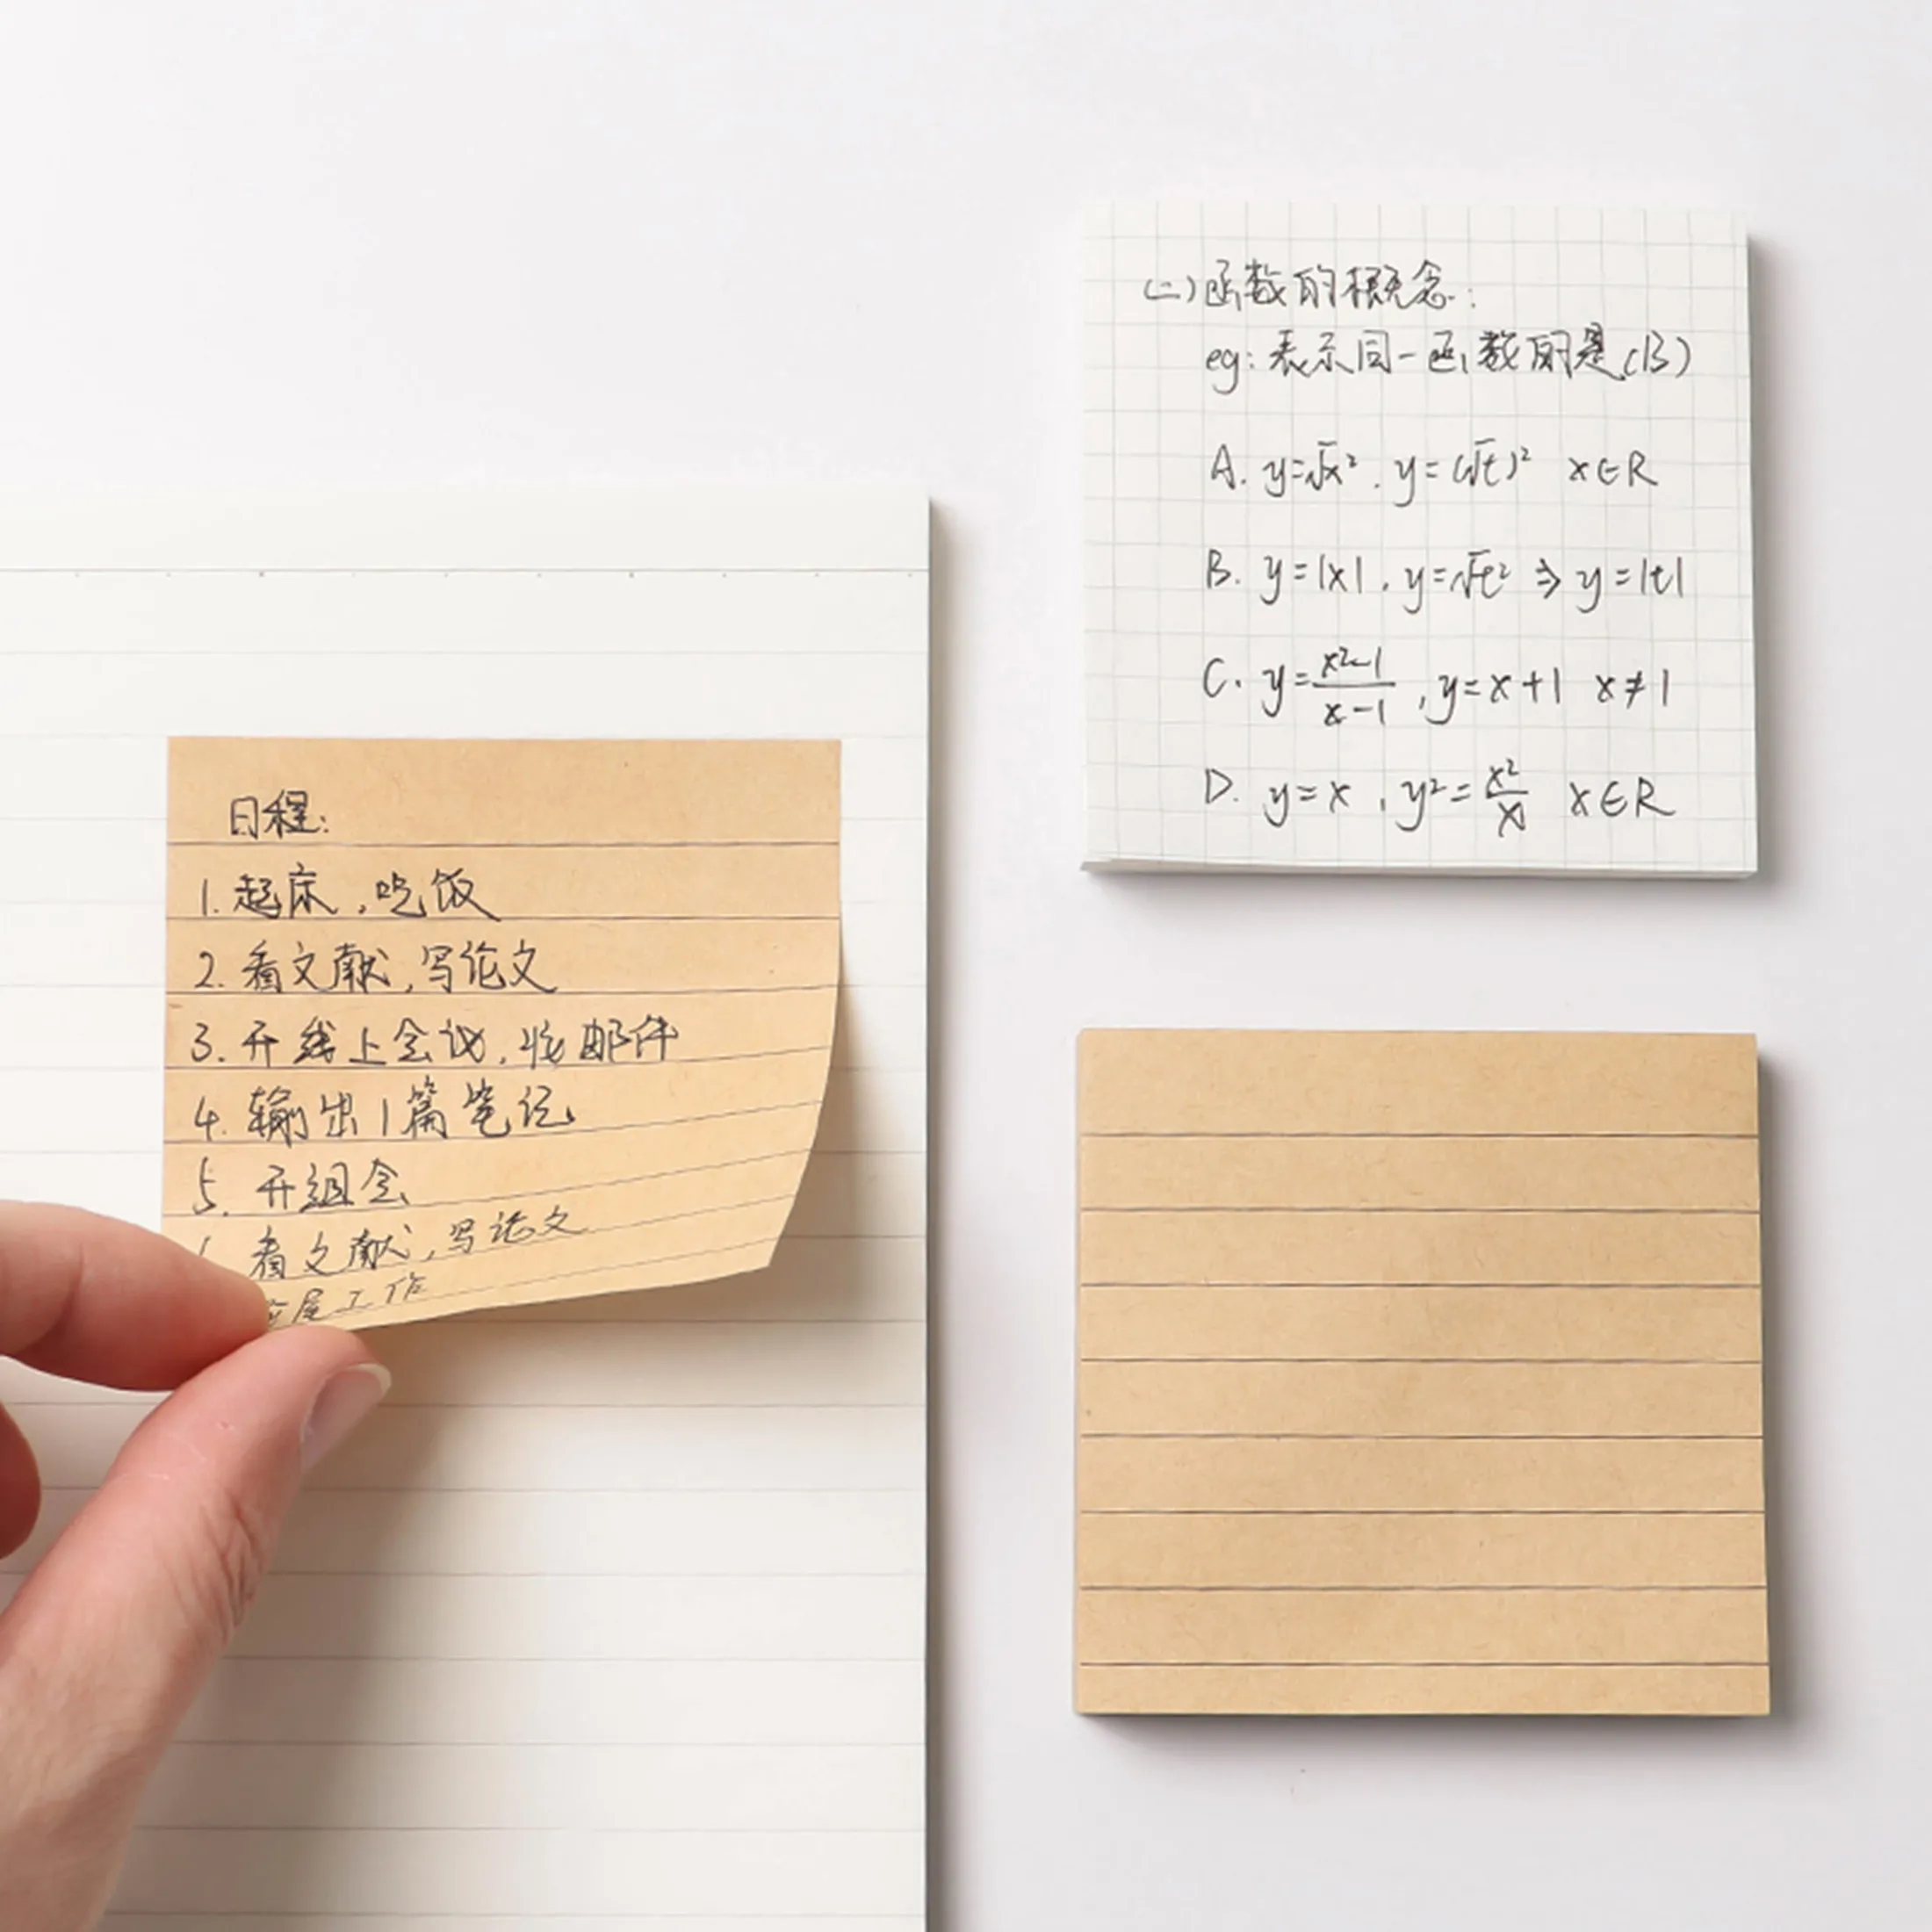 日程:
1. 起床,吃饭
2. 看文献,写论文
3. 开线上会议,收邮件
4. 输出1篇笔记
5. 开组会
看文献,写论文
工作
(二)函数的概念:
eg:表示同一函数的是(B)
A. y=√x², y=(√t)² x∈R
B. y=|x|, y=√t² ⇒ y=|t|
C. y=x²-1/x-1, y=x+1 x≠1
D. y=x, y²=x²/x x∈R